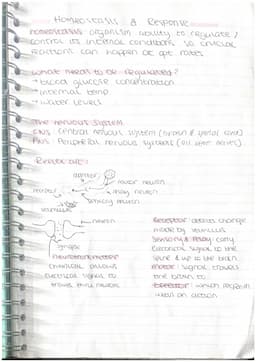 Homeostasis & Response
homeostasis organism ability to regulate/
control its internal conditions so crucial
reactions can happen at opt rates
what needs to be regulated?
→ blood glucose concentration
→ internal temp
→ water levels
The nervous system
CNS central nervous system (brain & spinal cord)
PNS: Peripheral nervous system (all other nerves)
Reflex arc:
effector
motor neuron
receptor
relay neuron
sensory neuron
stimulus
neuron
synapse
neurotransmitter
chemical allows
electrical signals to
travel thru neuron
Receptor detects change
made by stimulus
Sensory & Relay: carry
electrical signal to the
spine & up to the brain
motor: signal travels
the brain to
Effector: which
an action